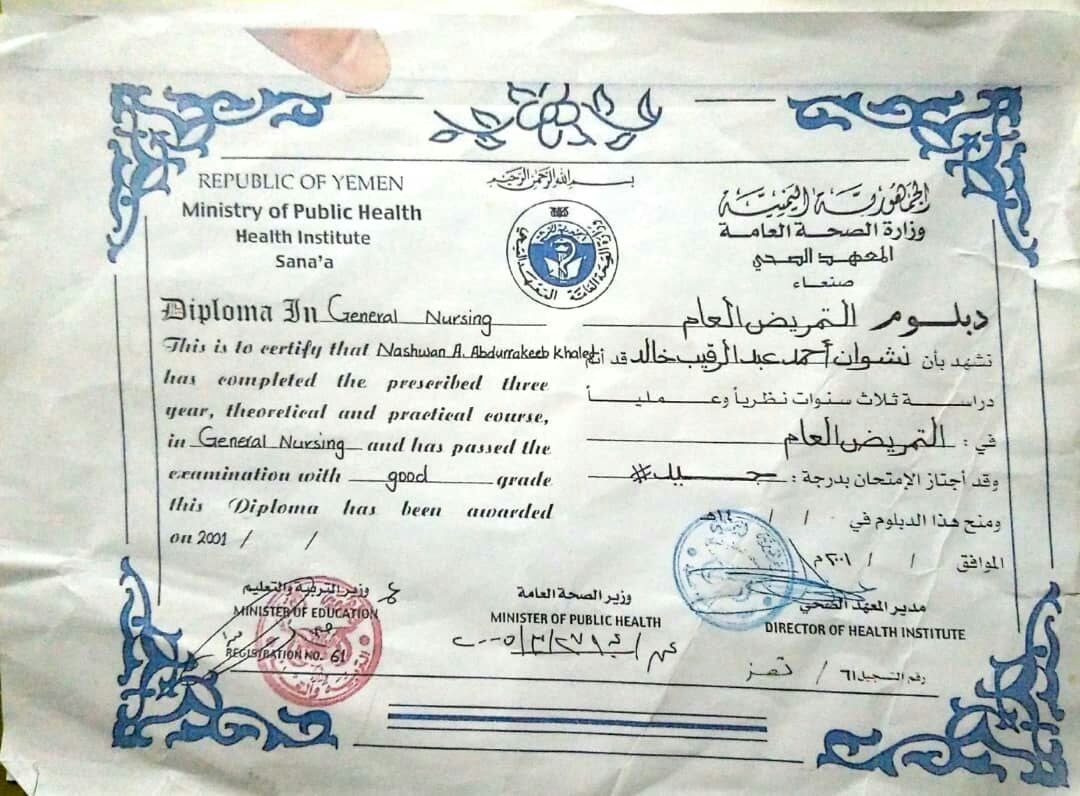 بسم الله الرحمن الرحيم
REPUBLIC OF YEMEN
Ministry of Public Health
Health Institute
Sana'a
Diploma In General Nursing
This is to certify that Nashwan A. Abdurrakeeb Khaled
has completed the prescribed three
year, theoretical and practical course,
in General Nursing and has passed the
examination with good grade
this Diploma has been awarded
on 2001 / /
الجمهورية اليمنية
وزارة الصحة العامة
المعهد الصحي
صنعاء
دبلوم التمريض العام
نشهد بأن نشوان أحمد عبدالرقيب خالد قد أتم
دراسة ثلاث سنوات نظرياً وعملياً
في : التمريض العام
وقد أجتاز الإمتحان بدرجة : جيد #
ومنح هذا الدبلوم في / / ١٤هـ
الموافق / / ٢٠٠١م
وزير التربية والتعليم
MINISTER OF EDUCATION
REGISTRATION NO. 61
وزير الصحة العامة
MINISTER OF PUBLIC HEALTH
مدير المعهد الصحي
DIRECTOR OF HEALTH INSTITUTE
رقم التسجيل ٦١ / تعز